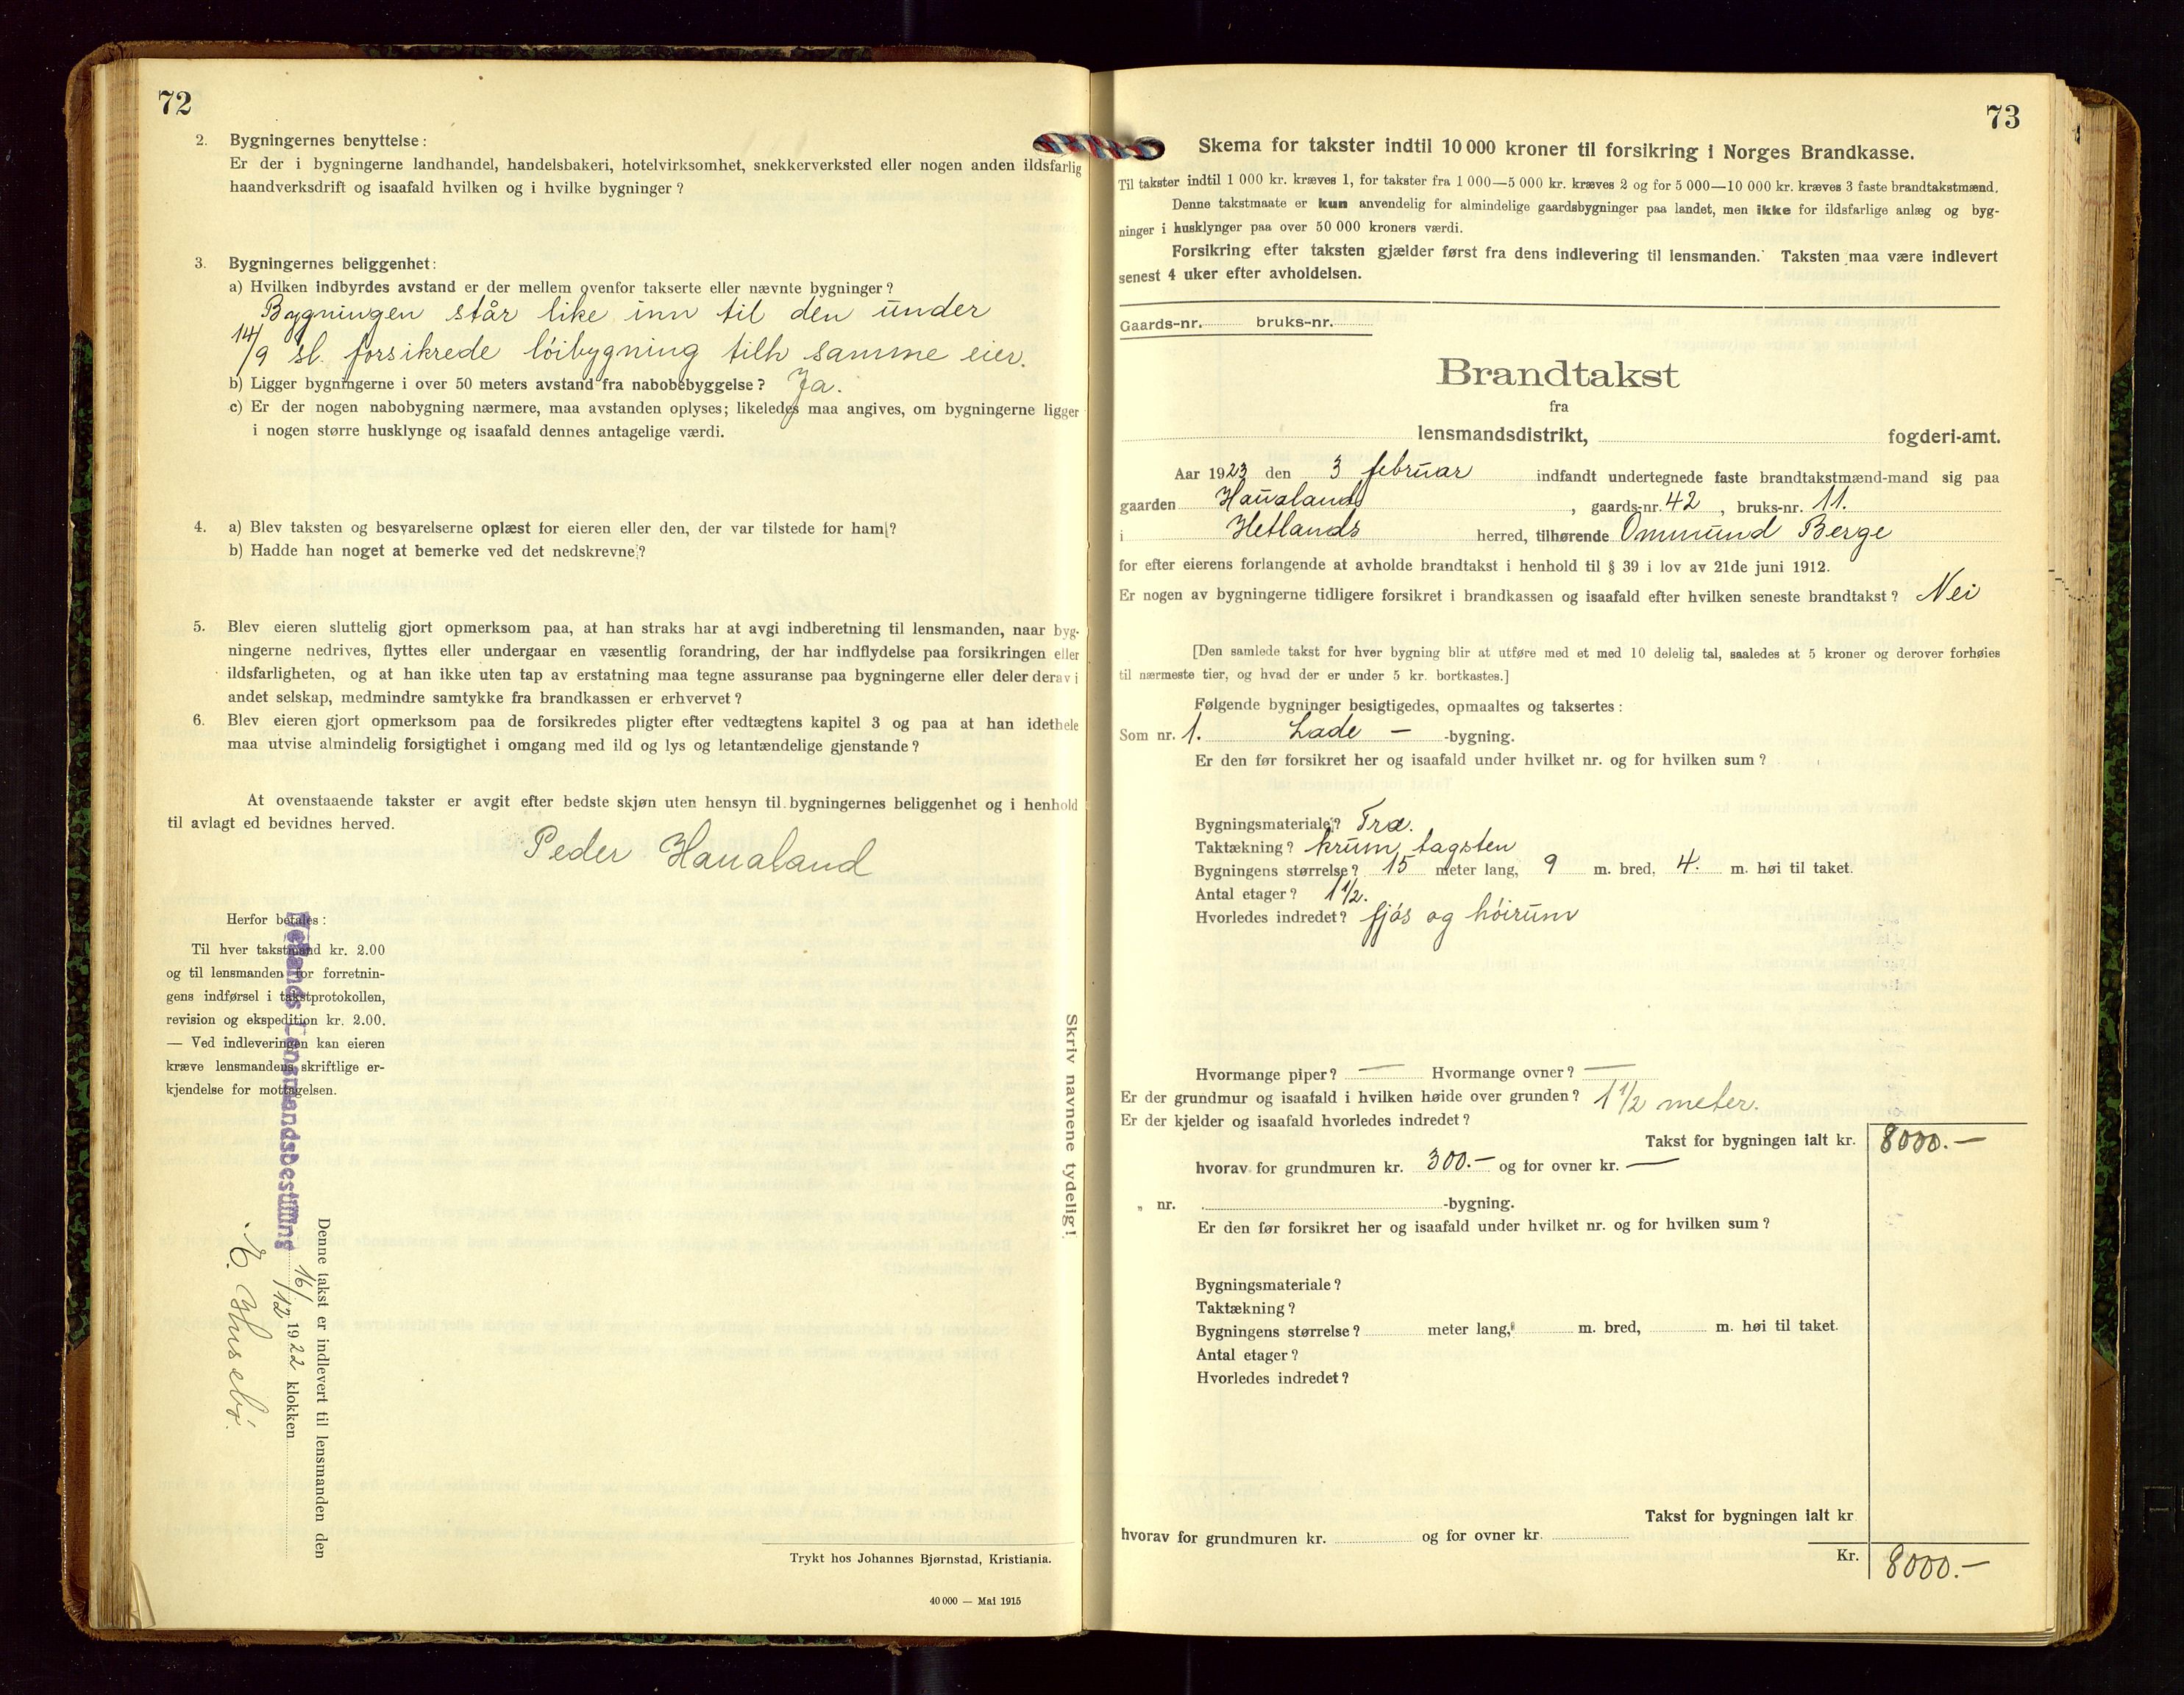 72
2. Bygningernes benyttelse:
Er der i bygningerne landhandel, handelsbakeri, hotelvirksomhet, snekkerverksted eller nogen anden ildsfarlig
haandverksdrift og isaafald hvilken og i hvilke bygninger?
3. Bygningernes beliggenhet:
a) Hvilken indbyrdes avstand er der mellem ovenfor takserte eller nævnte bygninger?
Bygningen står like inn til den under
14/9 sl. forsikrede löibygning tilh samme eier.
b) Ligger bygningerne i over 50 meters avstand fra nabobebyggelse? Ja.
c) Er der nogen nabobygning nærmere, maa avstanden oplyses; likeledes maa angives, om bygningerne ligger
i nogen større husklynge og isaafald dennes antagelige værdi.
4. a) Blev taksten og besvarelserne oplæst for eieren eller den, der var tilstede for ham?
b) Hadde han noget at bemerke ved det nedskrevne?
5. Blev eieren sluttelig gjort opmerksom paa, at han straks har at avgi indberetning til lensmanden, naar byg-
ningerne nedrives, flyttes eller undergaar en væsentlig forandring, der har indflydelse paa forsikringen eller
ildsfarligheten, og at han ikke uten tap av erstatning maa tegne assuranse paa bygningerne eller deler derav i
andet selskap, medmindre samtykke fra brandkassen er erhvervet?
6. Blev eieren gjort opmerksom paa de forsikredes pligter efter vedtægtens kapitel 3 og paa at han idethele
maa utvise almindelig forsigtighet i omgang med ild og lys og letantændelige gjenstande?
At ovenstaaende takster er avgit efter bedste skjøn uten hensyn til bygningernes beliggenhet og i henhold
til avlagt ed bevidnes herved.
Peder Haualand
Herfor betales:
Til hver takstmand kr. 2.00
og til lensmanden for forretnin-
gens indførsel i takstprotokollen,
revision og ekspedition kr. 2.00.
— Ved indleveringen kan eieren
kræve lensmandens skriftlige er-
kjendelse for mottagelsen.
Skriv navnene tydelig!
Denne takst er indlevert til lensmanden den
16/12 1922 klokken
Hetlands Lensmandsbestilling
E. Husebö.
Trykt hos Johannes Bjørnstad, Kristiania.
40 000 — Mai 1915
73
Skema for takster indtil 10 000 kroner til forsikring i Norges Brandkasse.
Til takster indtil 1 000 kr. kræves 1, for takster fra 1 000—5 000 kr. kræves 2 og for 5 000—10 000 kr. kræves 3 faste brandtakstmænd.
Denne takstmaate er kun anvendelig for almindelige gaardsbygninger paa landet, men ikke for ildsfarlige anlæg og byg-
ninger i husklynger paa over 50 000 kroners værdi.
Forsikring efter taksten gjælder først fra dens indlevering til lensmanden. Taksten maa være indlevert
senest 4 uker efter avholdelsen.
Gaards-nr. bruks-nr.
Brandtakst
fra
lensmandsdistrikt, fogderi-amt.
Aar 1923 den 3 februar indfandt undertegnede faste brandtakstmænd-mand sig paa
gaarden Haualands, gaards-nr. 42, bruks-nr. 11.
i Hetlands herred, tilhørende Ommund Berge
for efter eierens forlangende at avholde brandtakst i henhold til § 39 i lov av 21de juni 1912.
Er nogen av bygningerne tidligere forsikret i brandkassen og isaafald efter hvilken seneste brandtakst? Nei
[Den samlede takst for hver bygning blir at utføre med et med 10 delelig tal, saaledes at 5 kroner og derover forhøies
til nærmeste tier, og hvad der er under 5 kr. bortkastes.]
Følgende bygninger besigtigedes, opmaaltes og taksertes:
Som nr. 1. Lade — -bygning.
Er den før forsikret her og isaafald under hvilket nr. og for hvilken sum?
Bygningsmateriale? Træ.
Taktækning? krum tagsten
Bygningens størrelse? 15 meter lang, 9 m. bred, 4. m. høi til taket.
Antal etager? 1 1/2.
Hvorledes indredet? fjós og hóirum
Hvormange piper? — Hvormange ovner? —
Er der grundmur og isaafald i hvilken høide over grunden? 1 1/2 meter.
Er der kjelder og isaafald hvorledes indredet?
Takst for bygningen ialt kr. 8000.—
hvorav for grundmuren kr. 300.— og for ovner kr. —
„ nr. -bygning.
Er den før forsikret her og isaafald under hvilket nr. og for hvilken sum?
Bygningsmateriale?
Taktækning?
Bygningens størrelse? meter lang, m. bred, m. høi til taket.
Antal etager?
Hvorledes indredet?
Takst for bygningen ialt kr
hvorav for grundmuren kr. og for ovner kr.
Kr. 8000.—